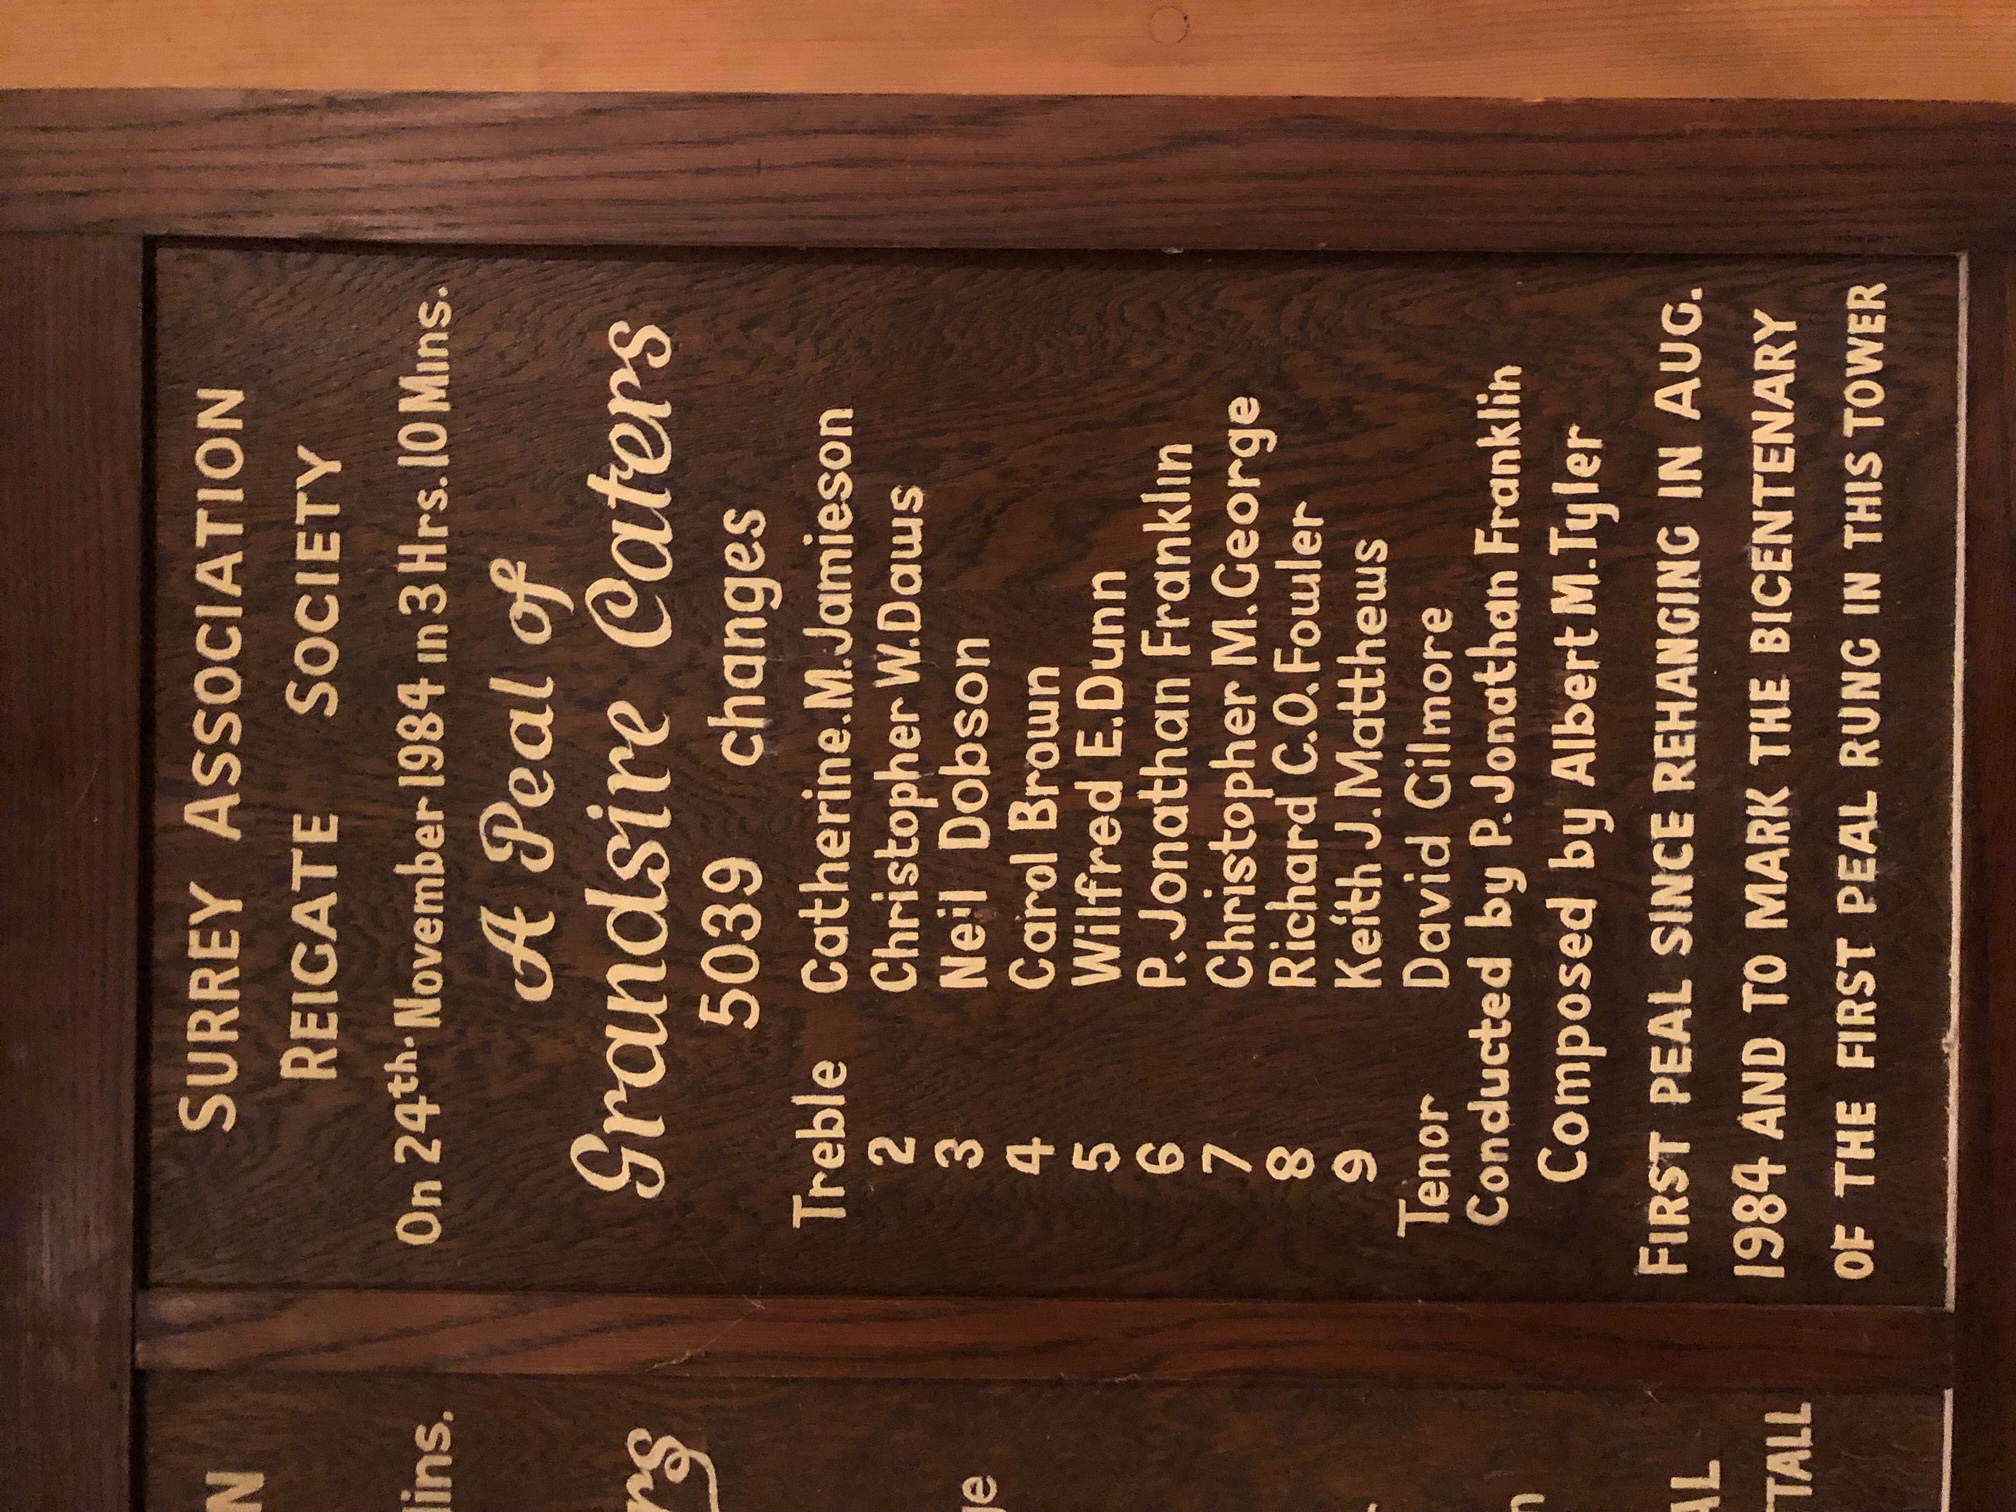 SURREY ASSOCIATION
REIGATE SOCIETY
On 24th. November 1984 in 3 Hrs. 10 Mins.
A Peal of
Grandsire Caters
5039 changes
Treble Catherine.M.Jamieson
2 Christopher W.Daws
3 Neil Dobson
4 Carol Brown
5 Wilfred E.Dunn
6 P.Jonathan Franklin
7 Christopher M.George
8 Richard C.O.Fowler
9 Keith J.Matthews
Tenor David Gilmore
Conducted by P.Jonathan Franklin
Composed by Albert M.Tyler
FIRST PEAL SINCE REHANGING IN AUG.
1984 AND TO MARK THE BICENTENARY
OF THE FIRST PEAL RUNG IN THIS TOWER